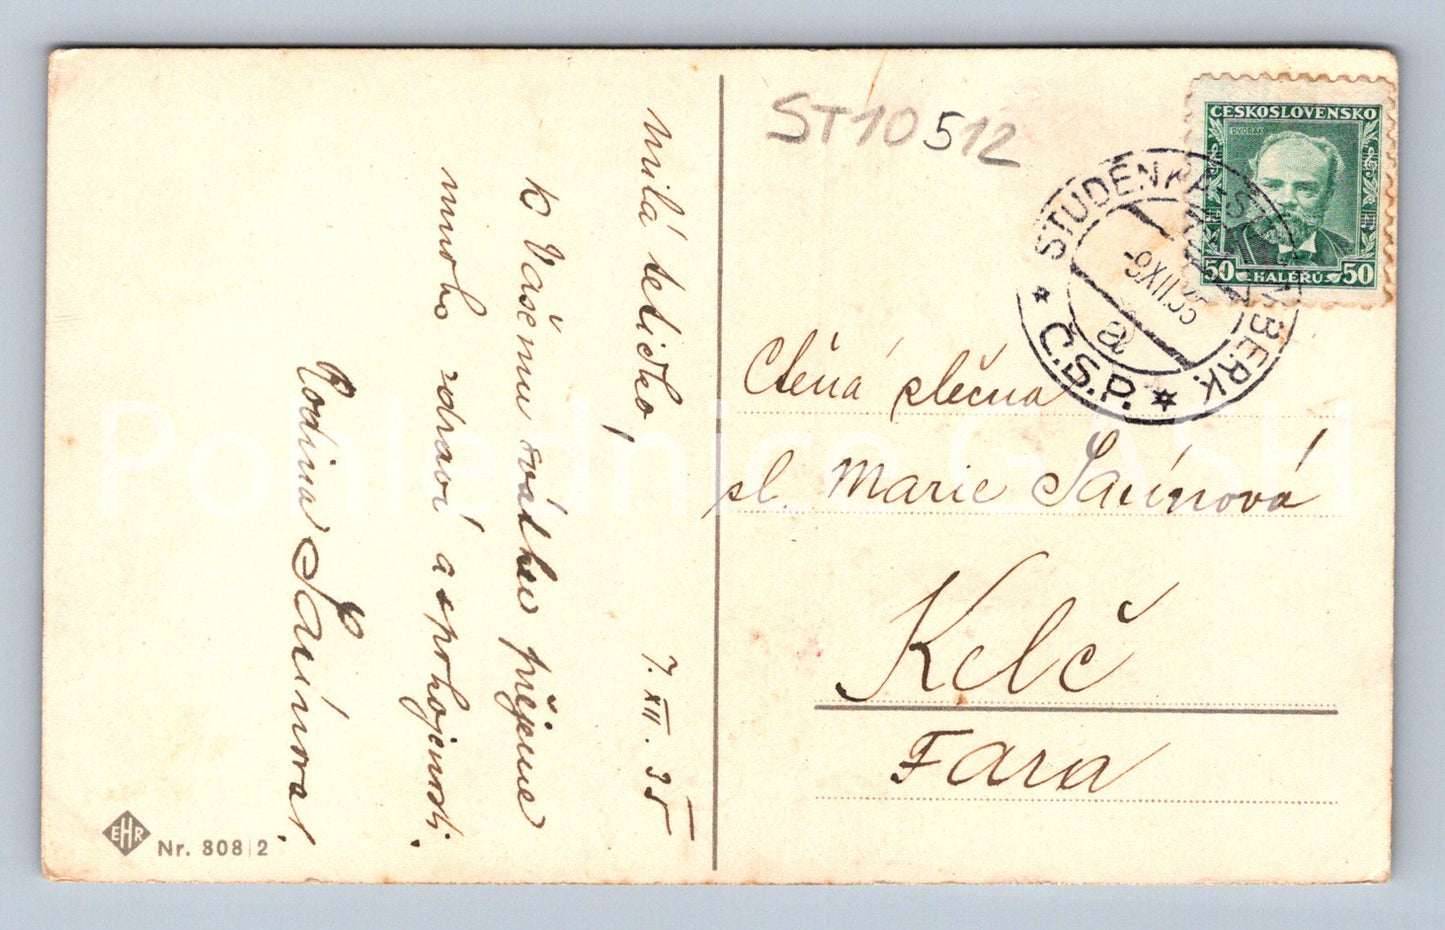 milá tetičko,
7. XII. 35
K Vašemu svátku přejeme
mnoho zdraví a spokojenosti.
Rodina Saínova.
EHR
Nr. 808|2
ST10512
ČESKOSLOVENSKO
DVOŘÁK
50 HALÉŘŮ 50
STUDÉNKA-ŠTRAMBERK
-9.XII.35
a
Č.S.P.
Ctěná slečna
sl. Marie Saínová
Kelč
Fara
Pohlednice GASH